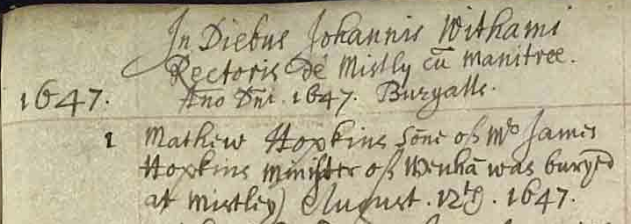 In Diebus Johannis Withami
Rectoris de Mistly cū Manitree.
1647. Ano Dni. 1647. Buryalls.
1 Mathew Hopkins sone of Mr James
Hopkins minister of Wenhā was buryed
at Mistley August. 12th. 1647.